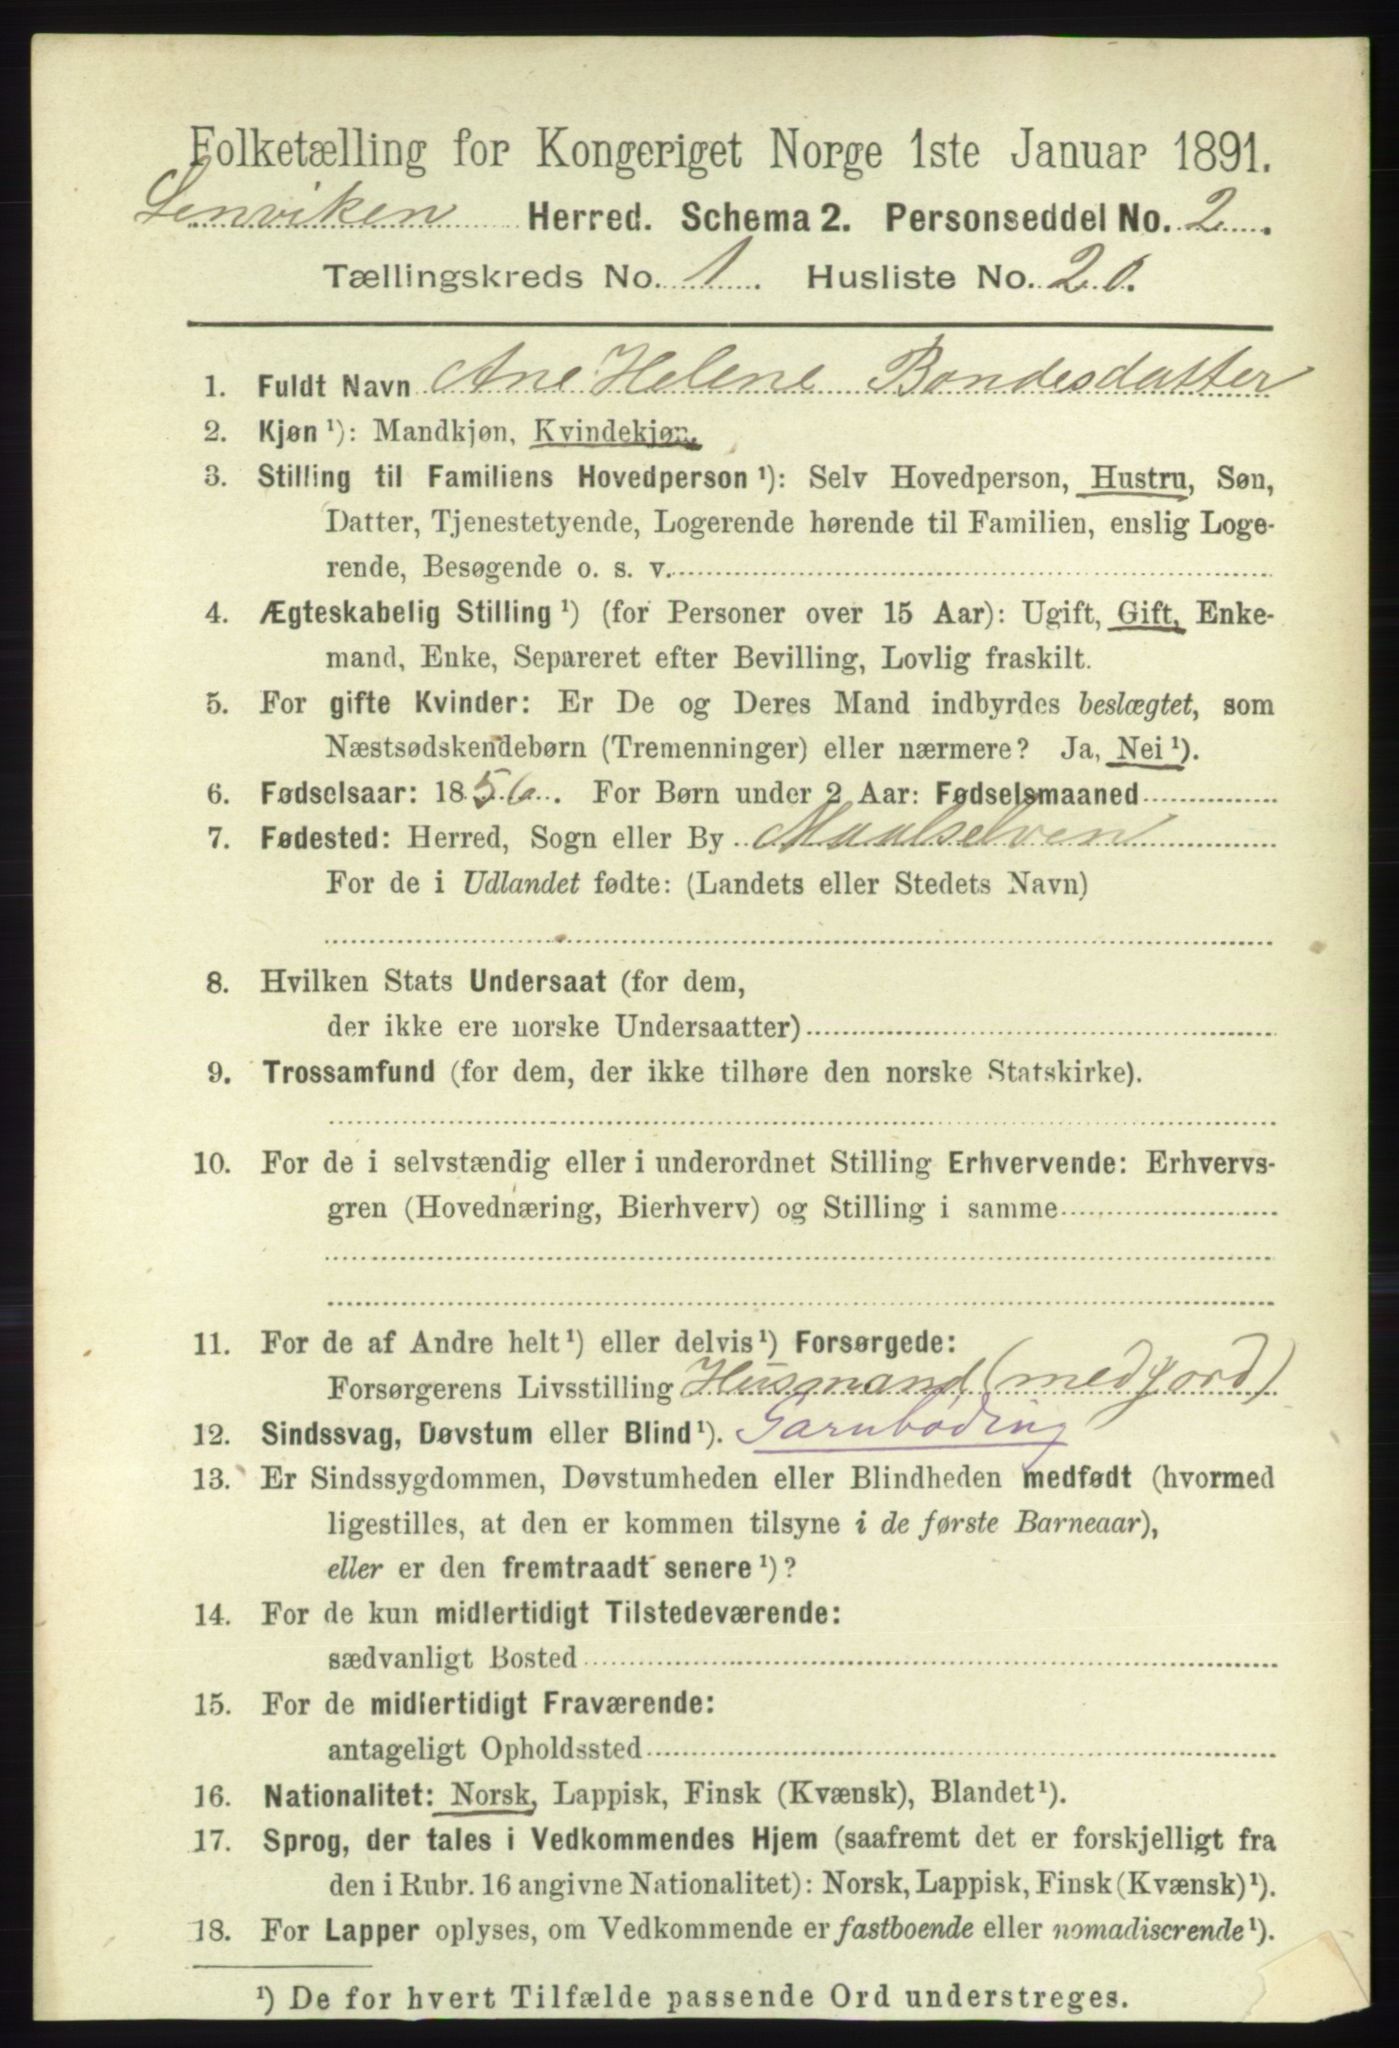 Folketælling for Kongeriget Norge 1ste Januar 1891.
Lenviken Herred. Schema 2. Personseddel No. 2
Tællingskreds No. 1 Husliste No. 20.
1. Fuldt Navn Ane Helene Bondesdatter
2. Kjøn ¹): Mandkjøn, Kvindekjøn.
3. Stilling til Familiens Hovedperson ¹): Selv Hovedperson, Hustru, Søn,
Datter, Tjenestetyende, Logerende hørende til Familien, enslig Loge-
rende, Besøgende o. s. v.
4. Ægteskabelig Stilling ¹) (for Personer over 15 Aar): Ugift, Gift, Enke-
mand, Enke, Separeret efter Bevilling, Lovlig fraskilt.
5. For gifte Kvinder: Er De og Deres Mand indbyrdes beslægtet, som
Næstsødskendebørn (Tremenninger) eller nærmere? Ja, Nei ¹).
6. Fødselsaar: 1856. For Børn under 2 Aar: Fødselsmaaned
7. Fødested: Herred, Sogn eller By Maalselven
For de i Udlandet fødte: (Landets eller Stedets Navn)
8. Hvilken Stats Undersaat (for dem,
der ikke ere norske Undersaatter)
9. Trossamfund (for dem, der ikke tilhøre den norske Statskirke).
10. For de i selvstændig eller i underordnet Stilling Erhvervende: Erhvervs-
gren (Hovednæring, Bierhverv) og Stilling i samme
11. For de af Andre helt ¹) eller delvis ¹) Forsørgede:
Forsørgerens Livsstilling Husmand (med jord)
12. Sindssvag, Døvstum eller Blind ¹). Garnbøding
13. Er Sindssygdommen, Døvstumheden eller Blindheden medfødt (hvormed
ligestilles, at den er kommen tilsyne i de første Barneaar),
eller er den fremtraadt senere ¹)?
14. For de kun midlertidigt Tilstedeværende:
sædvanligt Bosted
15. For de midlertidigt Fraværende:
antageligt Opholdssted
16. Nationalitet: Norsk, Lappisk, Finsk (Kvænsk), Blandet ¹).
17. Sprog, der tales i Vedkommendes Hjem (saafremt det er forskjelligt fra
den i Rubr. 16 angivne Nationalitet): Norsk, Lappisk, Finsk (Kvænsk) ¹).
18. For Lapper oplyses, om Vedkommende er fastboende eller nomadiserende ¹).
¹) De for hvert Tilfælde passende Ord understreges.